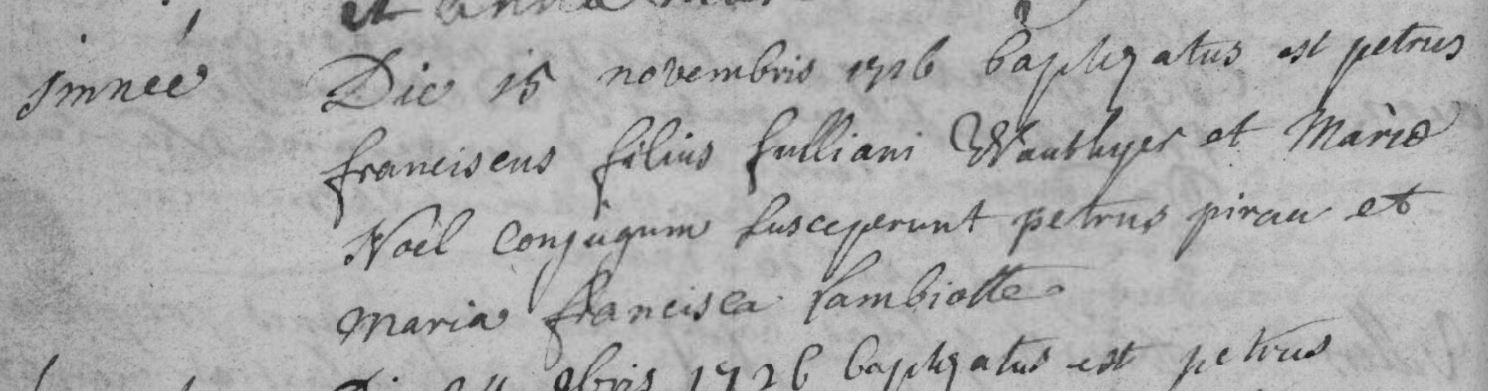 et anna mar
jmneé
Die 15 novembris 1726 baptizatus est petrus
franciscus filius Julliani Wauthyer et Mariæ
Noèl conjugum susceperunt petrus pirau et
maria francisca Lambiotte
1726 baptizatus est petrus